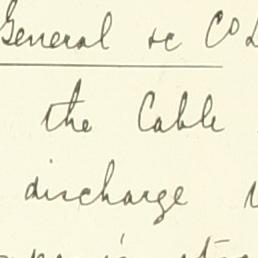 General &c Co
the Cable
discharge